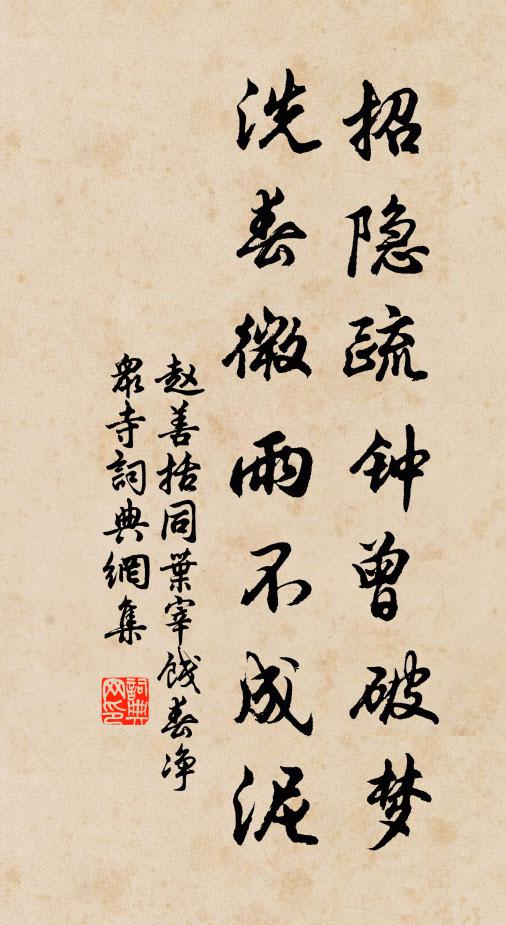 招隐疏钟曾破梦
洗春微雨不成泥
赵善括同葉宰餞春净
眾寺詞典網集
詞典网印